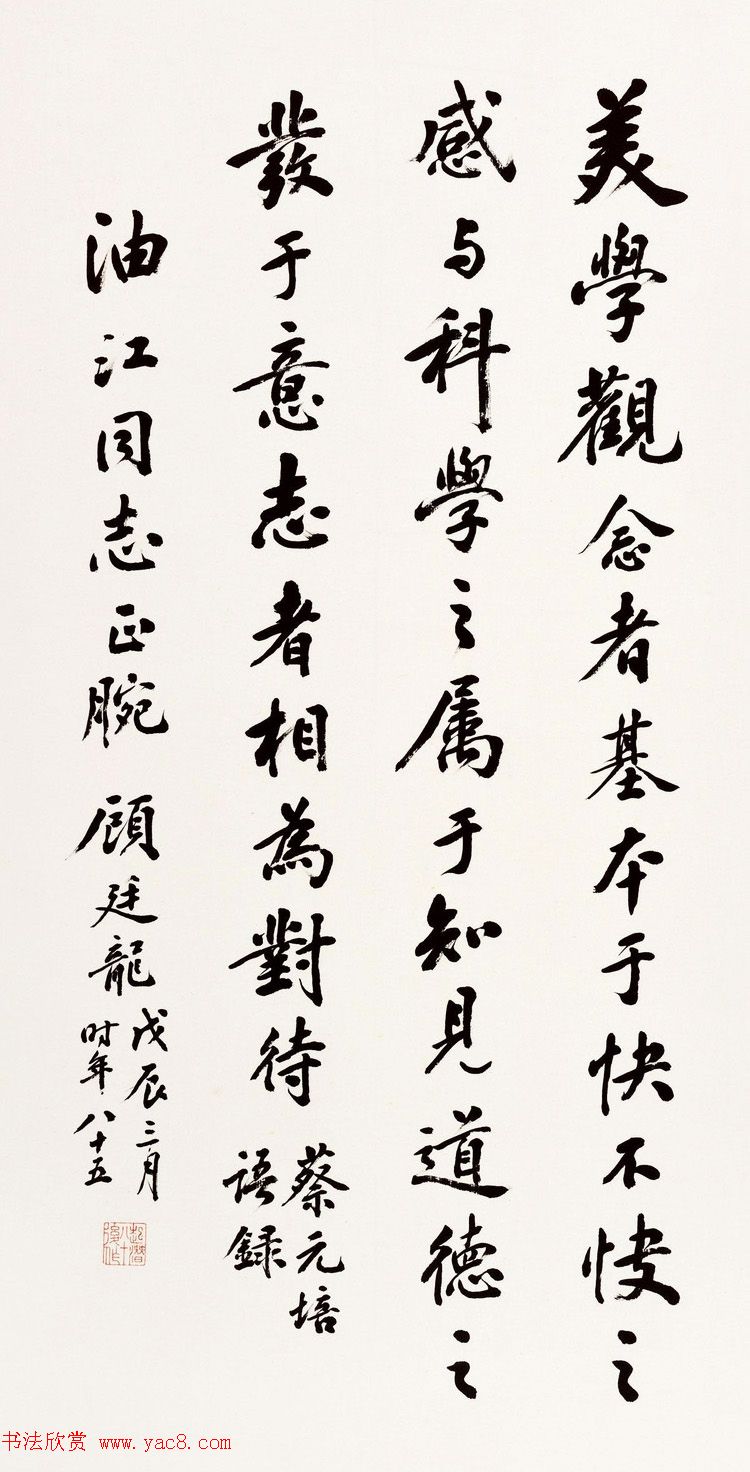 美學觀念者基本于快不快之
感与科學之属于知見道德之
發于意志者相為對待
蔡元培
語録
油江同志正腕 顧廷龍
戊辰三月
时年八十五
起潛八十後作
书法欣赏 www.yac8.com